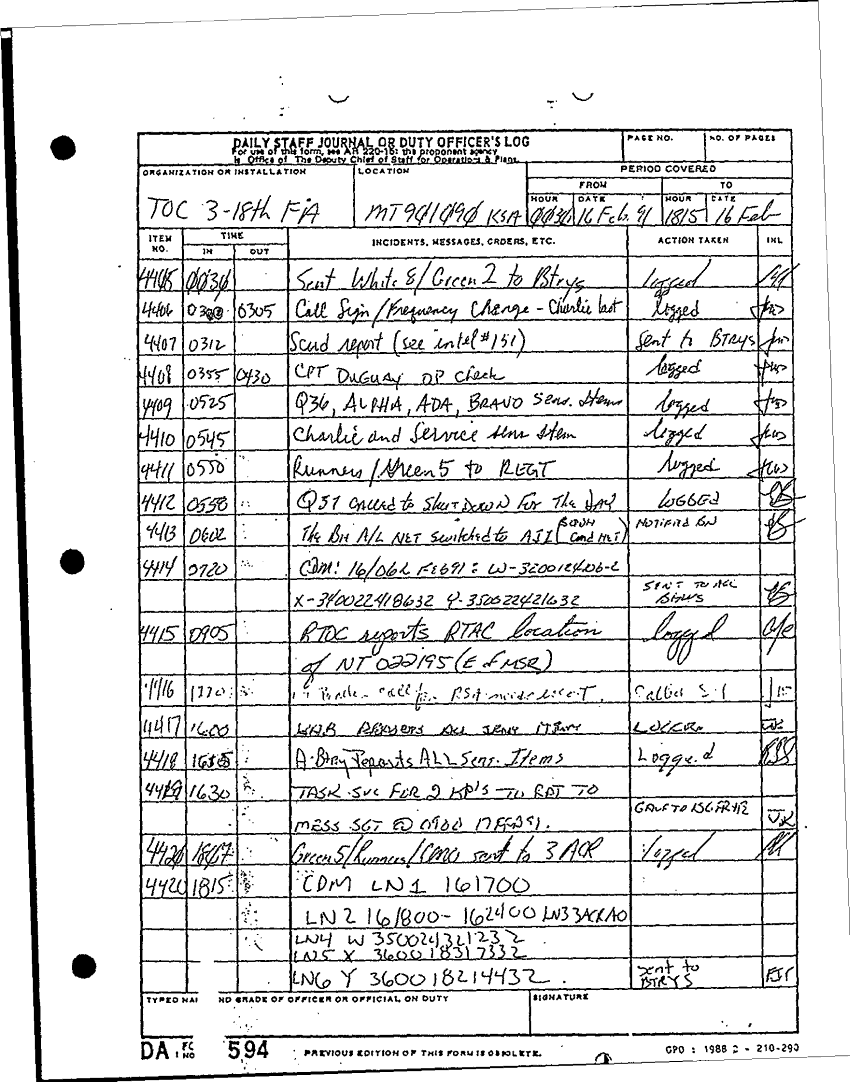 DAILY STAFF JOURNAL OR DUTY OFFICER'S LOG
For use of this form, see AR 220-15; the proponent agency
is Office of The Deputy Chief of Staff for Operations & Plans.
PAGE NO.
NO. OF PAGES
ORGANIZATION OR INSTALLATION
LOCATION
PERIOD COVERED
FROM
TO
HOUR DATE HOUR DATE
TOC 3-18th FA MT901090 KSA 0030 16 Feb. 91 1815 16 Feb
ITEM NO.
TIME
IN OUT
INCIDENTS, MESSAGES, ORDERS, ETC.
ACTION TAKEN
INL
4405 0030 Sent White 8/Green 2 to Btrys logged
4406 0305 Call Sign/Frequency Change - Charlie last logged
4407 0312 Scud report (see intel #151) Sent to BTRYS
4408 0355 0430 CPT DUGUAY OP check logged
4409 0525 Q36, ALPHA, ADA, BRAVO Sens. Items logged
4410 0545 Charlie and Service sens Item logged
4411 0550 Runners/Green 5 to REGT logged
4412 0558 Q37 to Shut DOWN For The Day LOGGED
4413 0602 The BN A/L NET switched to AJI NOTIFIED BN
4414 0720 CDM: 16/062 FEB91: W-3200124062
SENT TO ALL BTRYS
X-340022418632 Y-350022421632
4415 0905 RTOC reports RTAC location logged
of NT 022195 (E of MSR)
4416 Called S-1
4417 1600 REPORTS ALL SENS ITEMS
4418 A-Btry reports ALL Sens. Items Logged
4419 1630 TASK SVC FOR 2 KP'S TO RPT TO
MESS SGT @ 0900 17FEB91.
4420 1807 Green 5/Runners/ sent to 3 ACR logged
4420 1815 CDM LN1 161700
LN2 161800- 162400 LN3 3ACRAO
LN4 W 350024321232
LN5 X 360018317332
LN6 Y 360018214432 sent to BTRYS
TYPED NAME AND GRADE OF OFFICER OR OFFICIAL ON DUTY
SIGNATURE
DA 594 PREVIOUS EDITION OF THIS FORM IS OBSOLETE.